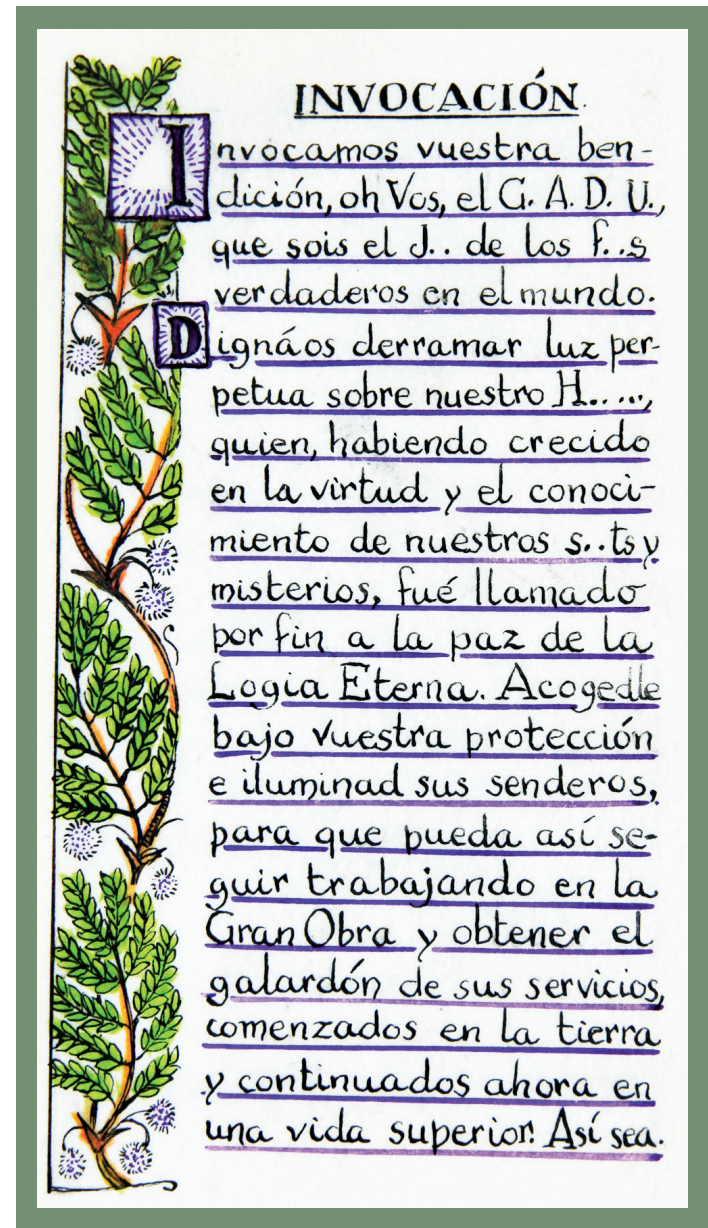 INVOCACIÓN.
Invocamos vuestra ben-
dición, oh Vos, el G. A. D. U.,
que sois el J.. de los f..s
verdaderos en el mundo.
Dignáos derramar luz per-
petua sobre nuestro H.. ...,
quien, habiendo crecido
en la virtud y el conoci-
miento de nuestros s..ts y
misterios, fué llamado
por fin a la paz de la
Logia Eterna. Acogedle
bajo vuestra protección
e iluminad sus senderos,
para que pueda así se-
guir trabajando en la
Gran Obra y obtener el
galardón de sus servicios,
comenzados en la tierra
y continuados ahora en
una vida superior. Así sea.